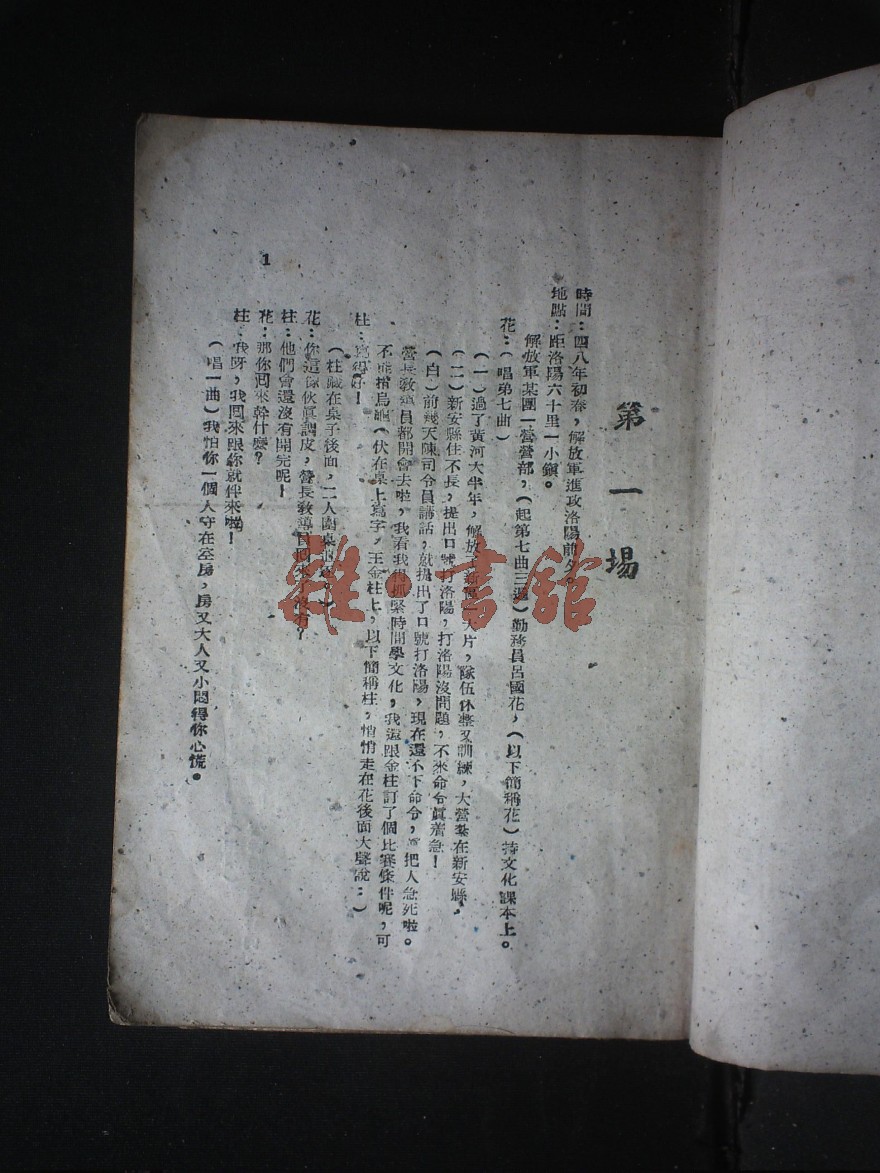 第一場
時間：四八年初春，解放軍進攻洛陽前夕。
地點：距洛陽六十里一小鎭。
解放軍某團一營營部，（起第七曲三遍）勤務員呂國花，（以下簡稱花）持文化課本上。
花：（唱第七曲）
（一）過了黃河大半年，解放一大片，隊伍休整又訓練，大營紮在新安縣，
（二）新安縣住不長，提出口號打洛陽，打洛陽沒問題，不來命令眞着急！
（白）前幾天陳司令員講話，就提出了口號打洛陽，現在還不下命令，把人急死啦。
營長敎導員都開會去啦，我看我得抓緊時間學文化，我還跟金柱訂了個比賽條件呢，可
不能揹烏龜（伏在桌上寫字，王金柱上，以下簡稱柱，悄悄走在花後面大聲說：）
柱：寫得好！
（柱藏在桌子後面，二人圍桌。）
花：你這傢伙眞調皮，營長敎導員回來了沒有？
柱：他們會還沒有開完呢！
花：那你囘來幹什麼？
柱：我呀，我囘來跟你就伴來啦！
（唱一曲）我怕你一個人守在空房，房又大人又小悶得你心慌。
1
雜·書館